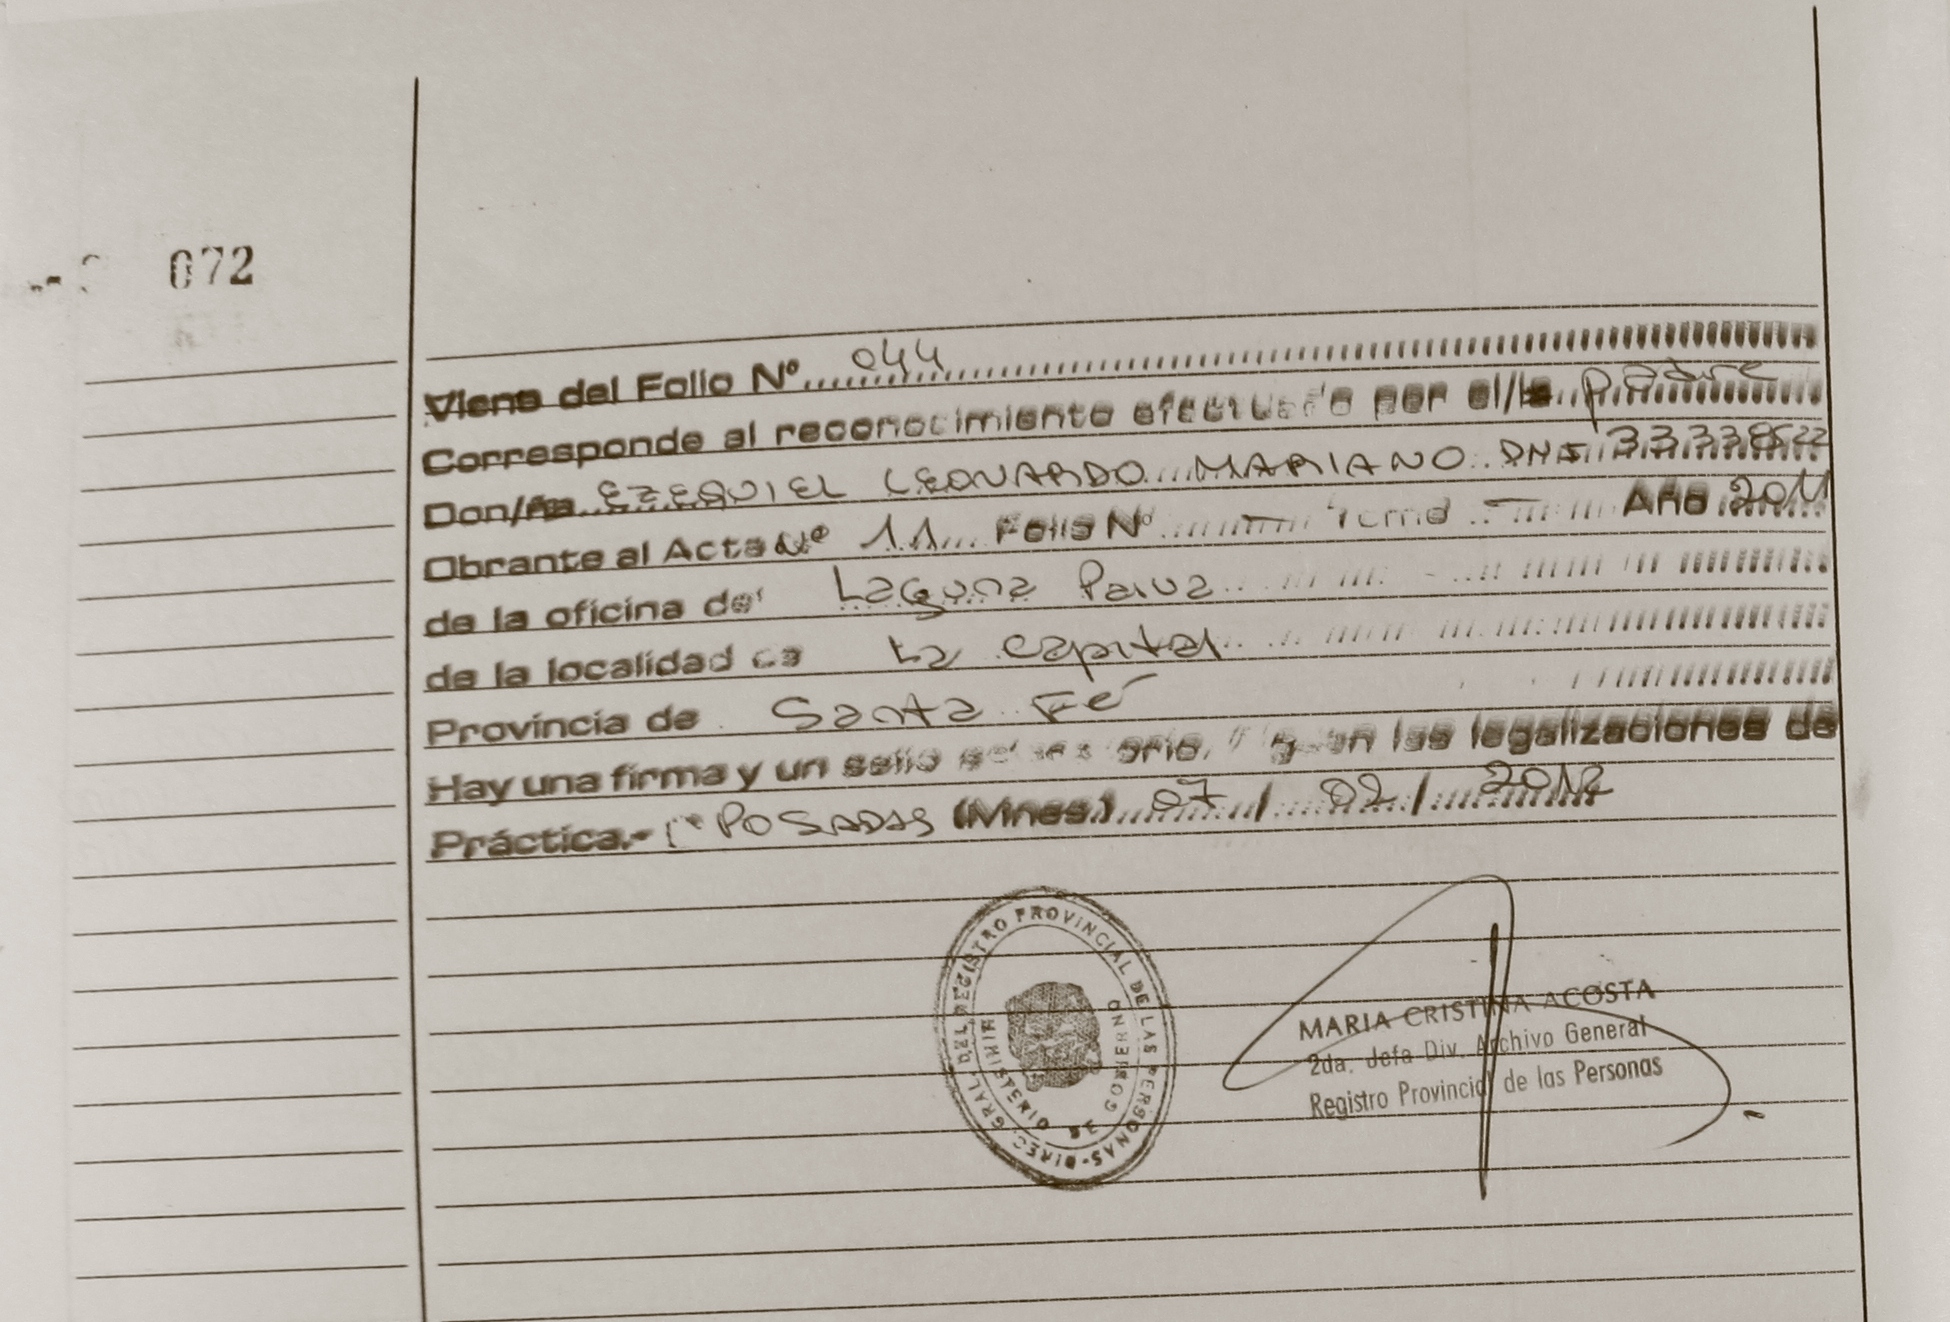 072
Viene del Folio Nº 044
Corresponde al reconocimiento efectuado por el/la padre
Don/ña EZEQUIEL LEONARDO MARIANO DNI
Obrante al Acta Nº 11 Folio Nº — Tomo — Año 2011
de la oficina de Laguna Paiva
de la localidad de La Capital
Provincia de Santa Fé
Hay una firma y un sello las legalizaciones de
Práctica.- POSADAS (Mnes.) 07/02/2012
DIREC. GRAL. DEL REGISTRO PROVINCIAL DE LAS PERSONAS
MINISTERIO DE GOBIERNO
MARIA CRISTINA ACOSTA
2da. Jefa Div. Archivo General
Registro Provincial de las Personas